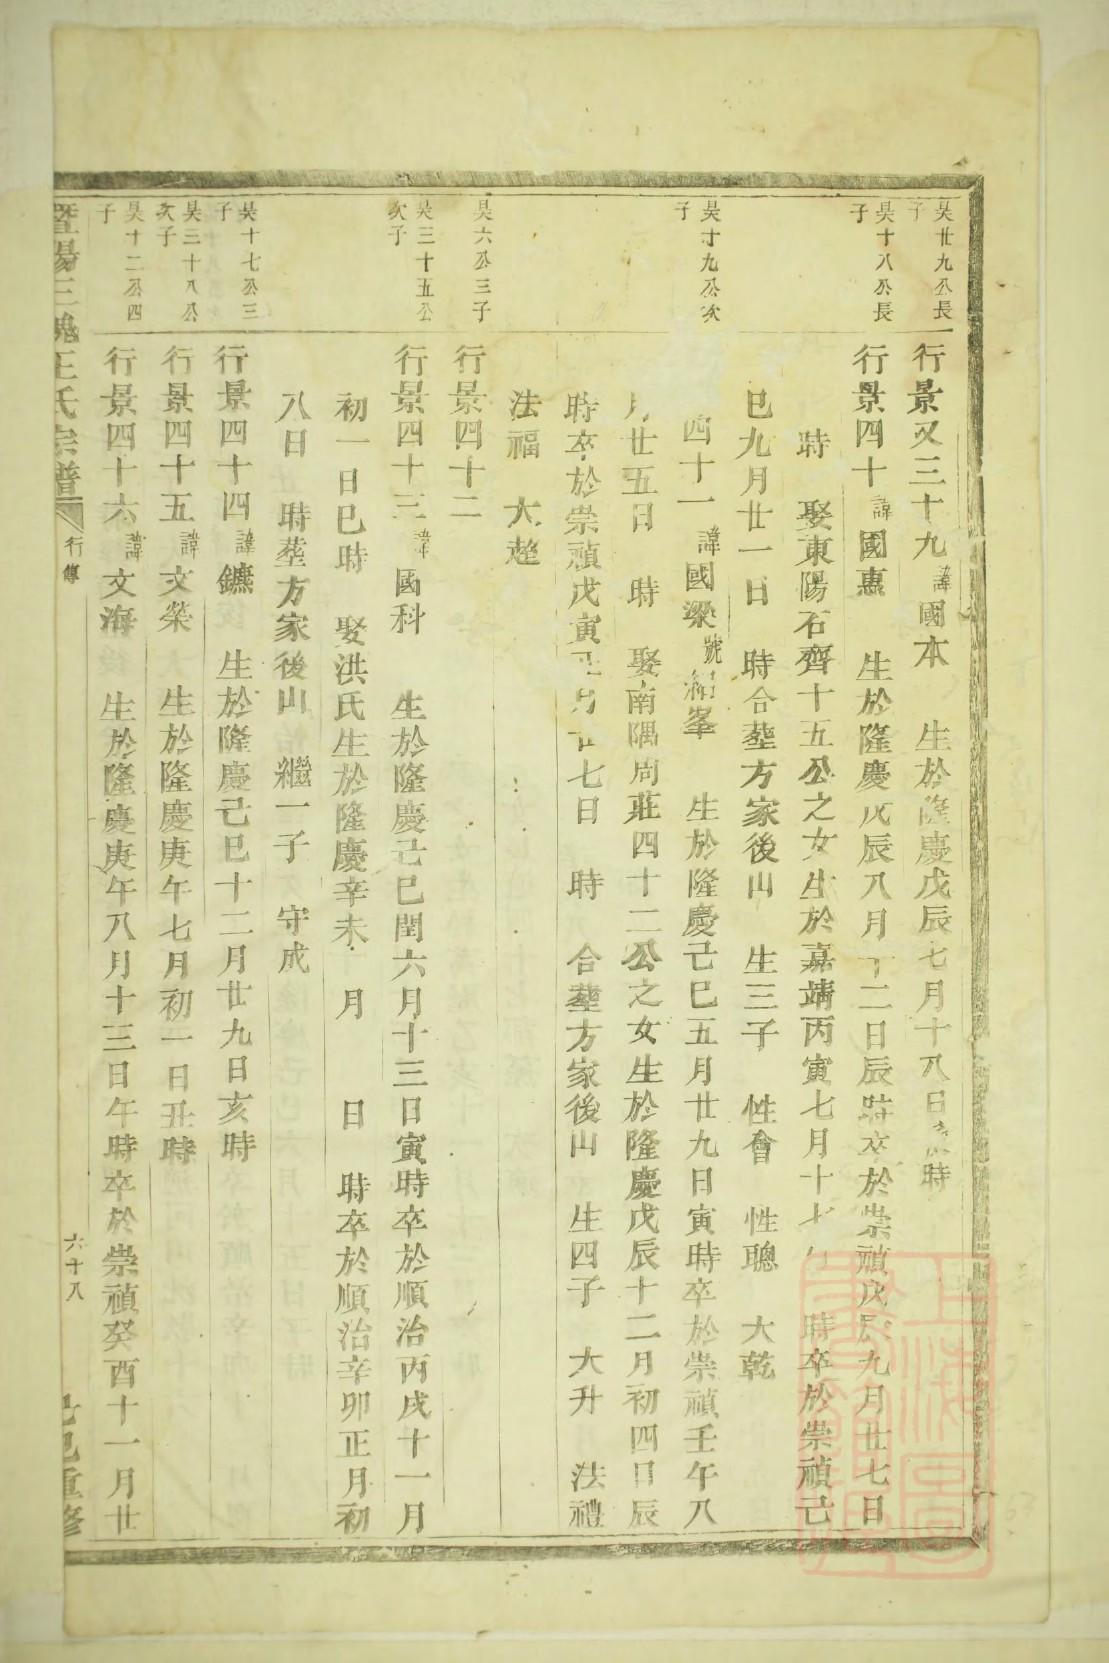 昊廿九公長子
行景又三十九諱國本　生於隆慶戊辰七月十八日時
昊十八公長子
行景四十諱國惠　生於隆慶戊辰八月十二日辰時卒於崇禎戊辰九月廿七日
時　娶東陽石齊十五公之女生於嘉靖丙寅七月十七　時卒於崇禎己
巳九月廿一日　時合塟方家後山　生三子　性會　性聰　大乾
昊十九公次子
四十一諱國梁號紹峯　生於隆慶己巳五月廿九日寅時卒於崇禎壬午八
月廿五日　時　娶南隅周莊四十二公之女生於隆慶戊辰十二月初四日辰
時卒於崇禎戊寅正月廿七日　時　合塟方家後山　生四子　大升　法禮
法福　大趂
昊六公三子
行景四十二
昊三十五公次子
行景四十三諱國科　生於隆慶己巳閏六月十三日寅時卒於順治丙戌十一月
初一日巳時　娶洪氏生於隆慶辛未　月　日　時卒於順治辛卯正月初
八日　時塟方家後山　繼一子　守成
昊十七公三子
行景四十四諱鑣　生於隆慶己巳十二月廿九日亥時
昊三十八公次子
行景四十五諱文榮　生於隆慶庚午七月初一日丑時
昊十二公四子
行景四十六諱文海　生於隆慶庚午八月十三日午時卒於崇禎癸酉十一月廿
暨陽三槐王氏宗譜
行傳
六十八
己巳重修